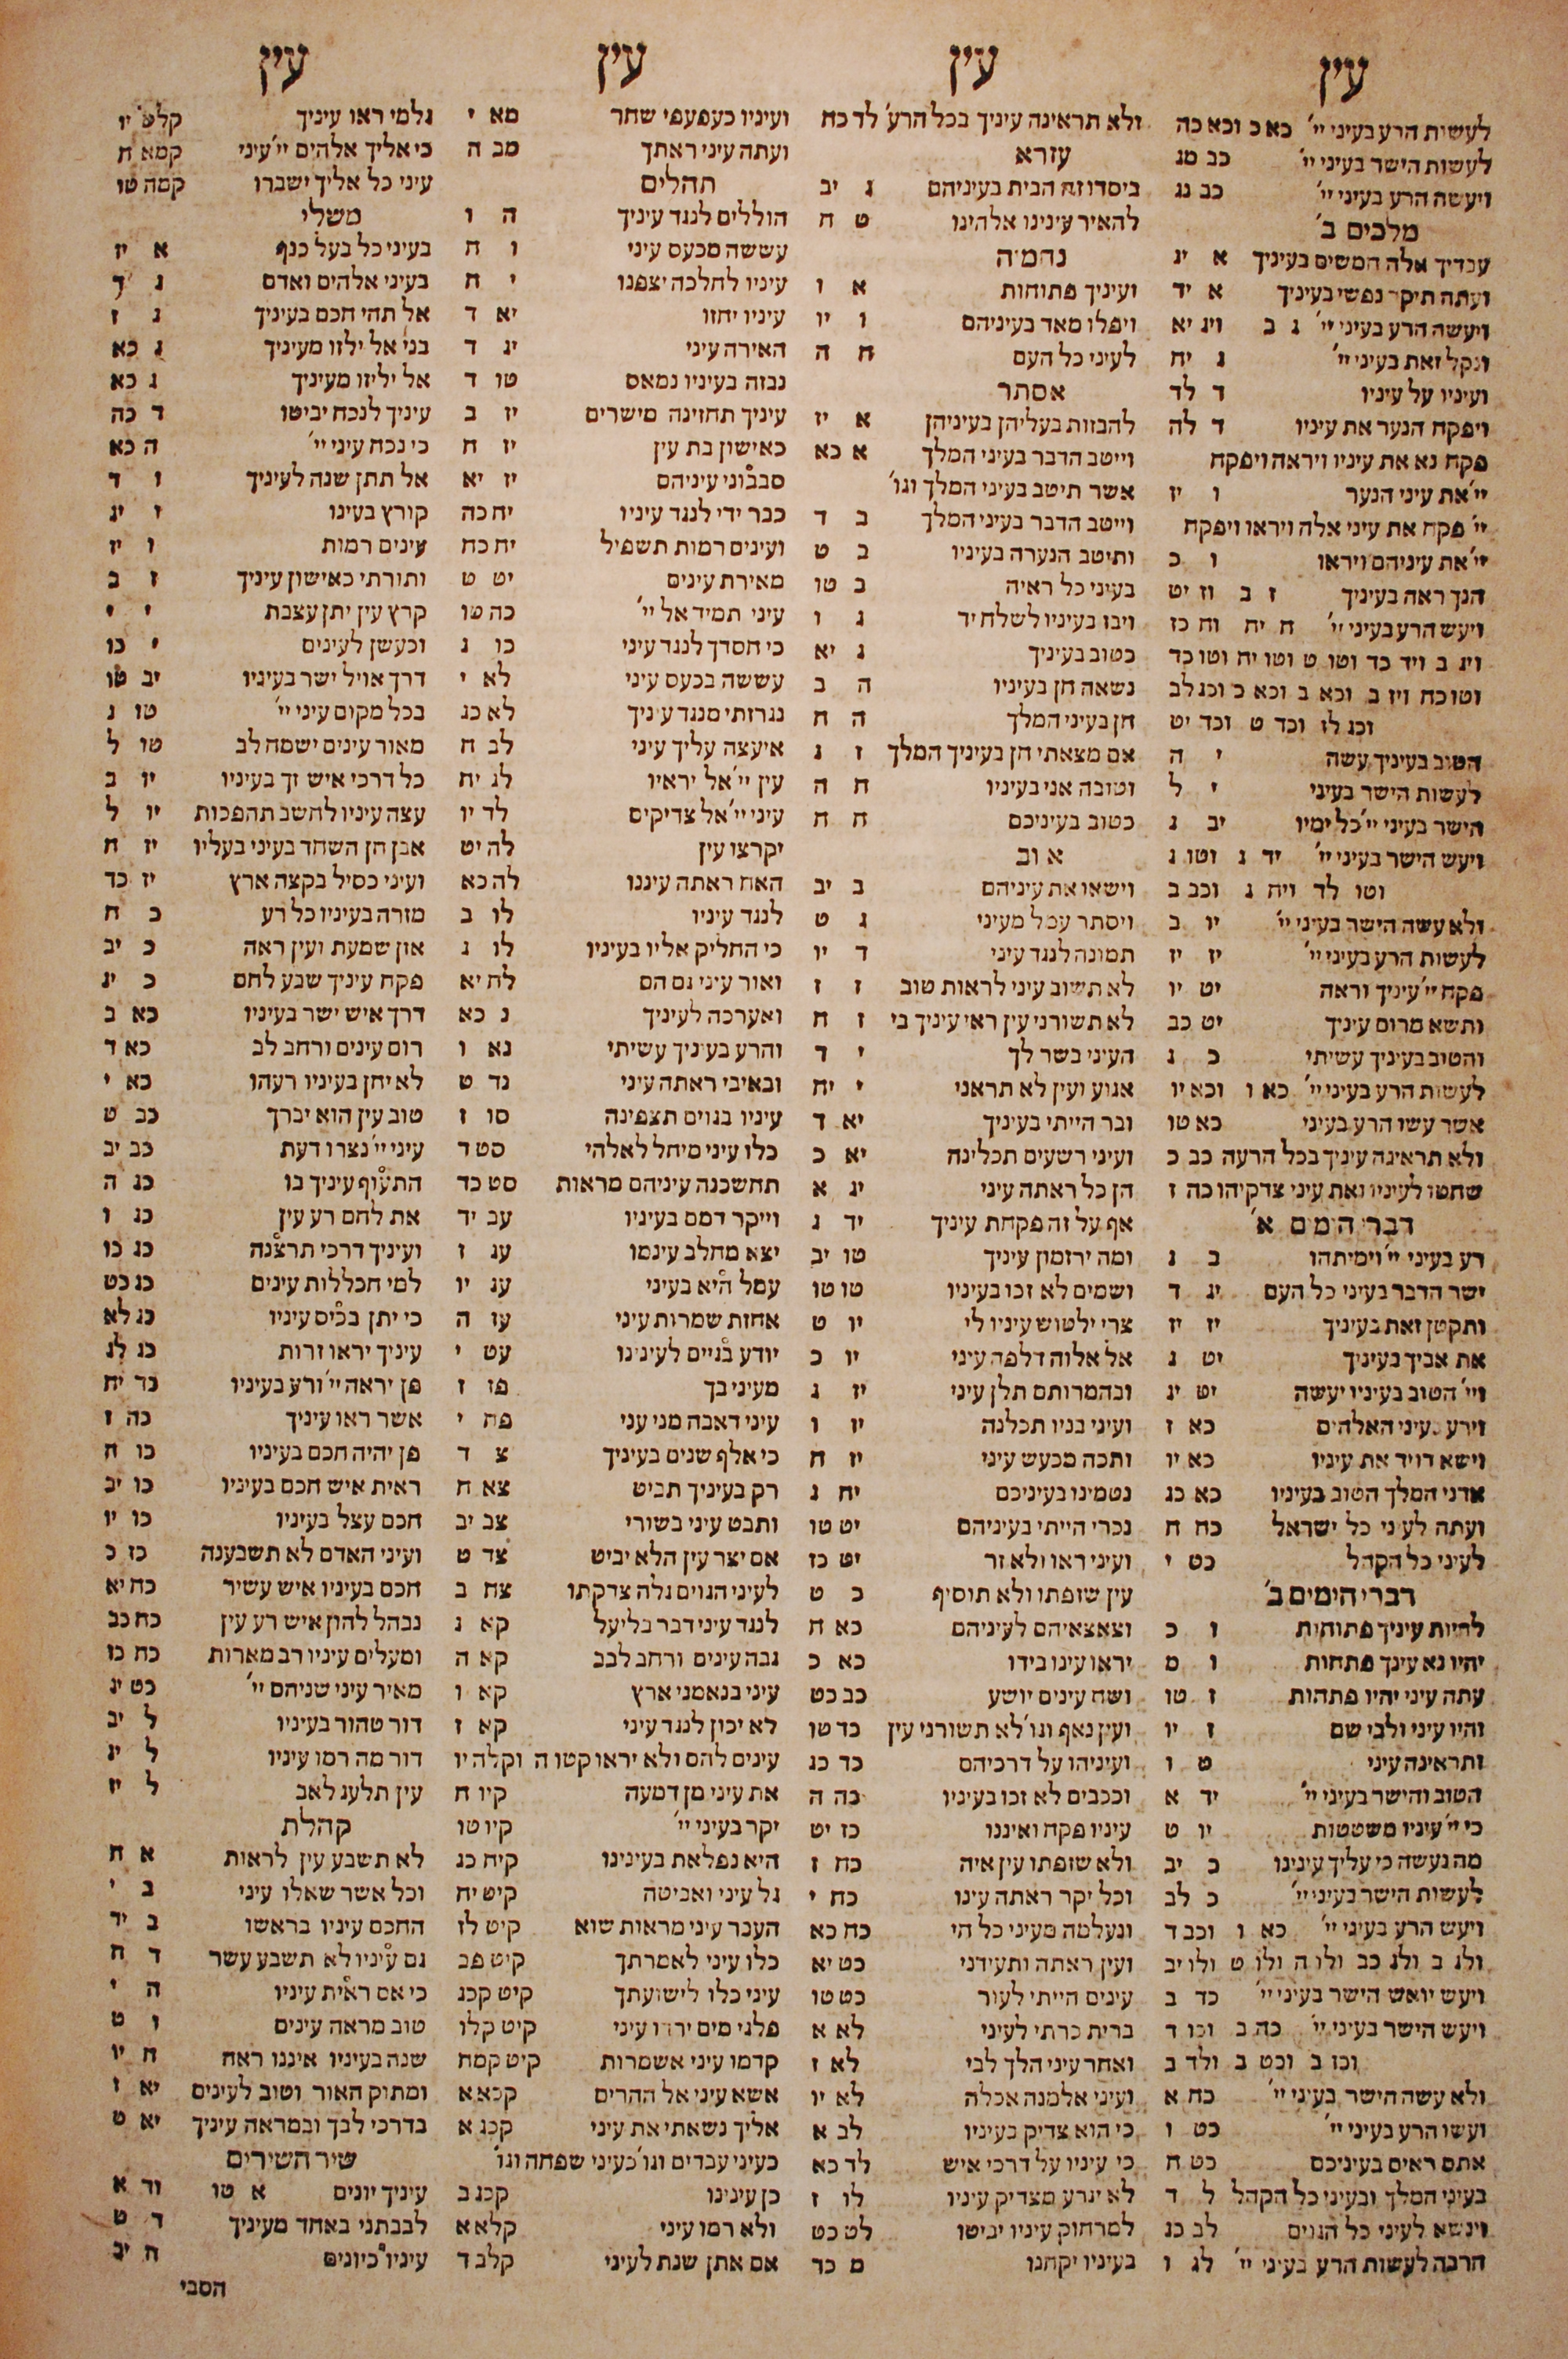 עין
לעשות הרע בעיני יי׳ כא כ וכא כה
לעשות הישר בעיני יי׳ כב מג
ויעשה הרע בעיני יי׳ כב נג
מלכים ב׳
עבדיך אלה חמשים בעיניך א יג
ועתה תיקר נפשי בעיניך א יד
ויעשה הרע בעיני יי׳ ג ב ויג יא
ונקל זאת בעיני יי׳ ג יח
ועיניו על עיניו ד לד
ויפקח הנער את עיניו ד לה
פקח נא את עיניו ויראה ויפקח
יי׳ את עיני הנער ו יז
יי׳ פקח את עיני אלה ויראו ויפקח
יי׳ את עיניהם ויראו ו כ
הנך ראה בעיניך ז ב וז יט
ויעש הרע בעיני יי׳ ח יח וח כז
ויג ב ויד כד וטו ט וטו יח וטו כד
וטו כח ויז ב וכא ב וכא כ וכג לב
וכג לז וכד ט וכד יט
הטוב בעיניך עשה י ה
לעשות הישר בעיני י ל
הישר בעיני יי׳ כל ימיו יב ג
ויעש הישר בעיני יי׳ יד ג וטו ג
וטו לד ויח ג וכב ב
ולא עשה הישר בעיני יי׳ יו ב
לעשות הרע בעיני יי׳ יז יז
פקח יי׳ עיניך וראה יט יו
ותשא מרום עיניך יט כב
והטוב בעיניך עשיתי כ ג
לעשות הרע בעיני יי׳ כא ו וכא יו
אשר עשו הרע בעיני כא טו
ולא תראינה עיניך בכל הרעה כב כ
שחטו לעיניו ואת עיני צדקיהו כה ז
דברי הימים א׳
רע בעיני יי׳ וימיתהו ב ג
ישר הדבר בעיני כל העם יג ד
ותקטן זאת בעיניך יז יז
את אביך בעיניך יט ג
ויי׳ הטוב בעיניו יעשה יט יג
וירע בעיני האלהים כא ז
וישא דויד את עיניו כא יו
אדני המלך הטוב בעיניו כא כג
ועתה לעיני כל ישראל כח ח
לעיני כל הקהל כט י
דברי הימים ב׳
להיות עיניך פתוחות ו כ
יהיו נא עיניך פתחות ו מ
עתה עיני יהיו פתחות ז טו
והיו עיני ולבי שם ז יו
ותראינה עיני ט ו
הטוב והישר בעיני יי׳ יד א
כי יי׳ עיניו משטטות יו ט
מה נעשה כי עליך עינינו כ יב
לעשות הישר בעיני יי׳ כ לב
ויעש הרע בעיני יי׳ כא ו וכב ד
ולג ב ולג כב ולו ה ולו ט ולו יב
ויעש יואש הישר בעיני יי׳ כד ב
ויעש הישר בעיני יי׳ כה ב וכו ד
וכז ב וכט ב ולד ב
ולא עשה הישר בעיני יי׳ כח א
ועשו הרע בעיני יי׳ כט ו
אתם ראים בעיניכם כט ח
בעיני המלך ובעיני כל הקהל ל ד
וינשא לעיני כל הגוים לב כג
הרבה לעשות הרע בעיני יי׳ לג ו
עין
ולא תראינה עיניך בכל הרע׳ לד כח
עזרא
ביסדו זה הבית בעיניהם ג יב
להאיר עינינו אלהינו ט ח
נחמיה
ועיניך פתוחות א ו
ויפלו מאד בעיניהם ו יו
לעיני כל העם ח ה
אסתר
להבזות בעליהן בעיניהן א יז
וייטב הדבר בעיני המלך א כא
אשר תיטב בעיני המלך וגו׳
וייטב הדבר בעיני המלך ב ד
ותיטב הנערה בעיניו ב ט
בעיני כל ראיה ב טו
ויבז בעיניו לשלח יד ג ו
כטוב בעיניך ג יא
נשאה חן בעיניו ה ב
חן בעיני המלך ה ח
אם מצאתי חן בעיניך המלך ז ג
וטובה אני בעיניו ח ה
כטוב בעיניכם ח ח
איוב
וישאו את עיניהם ב יב
ויסתר עמל מעיני ג ט
תמונה לנגד עיני ד יו
לא תשוב עיני לראות טוב ז ז
לא תשורני עין ראי עיניך בי ז ח
העיני בשר לך י ד
אגוע ועין לא תראני י יח
ובר הייתי בעיניך יא ד
ועיני רשעים תכלינה יא כ
הן כל ראתה עיני יג א
אף על זה פקחת עיניך יד ג
ומה ירזמון עיניך טו יב
ושמים לא זכו בעיניו טו טו
צרי ילטוש עיניו לי יו ט
אל אלוה דלפה עיני יו כ
ובהמרותם תלן עיני יז ג
ועיני בניו תכלנה יז ו
ותכה מכעש עיני יז ח
נטמינו בעיניכם יח ג
נכרי הייתי בעיניהם יט טו
ועיני ראו ולא זר יט כז
עין שזפתו ולא תוסיף כ ט
וצאצאיהם לעיניהם כא ח
יראו עינו כידו כא כ
ושח עינים יושע כב כט
ועין נאף וגו׳ לא תשורני עין כד טו
ועיניהו על דרכיהם כד כג
וכוכבים לא זכו בעיניו כה ה
עיניו פקח ואיננו כז יט
ולא שזפתו עין איה כח ז
וכל יקר ראתה עינו כח י
ונעלמה מעיני כל חי כח כא
ועין ראתה ותעידני כט יא
עינים הייתי לעור כט טו
ברית כרתי לעיני לא א
ואחר עיני הלך לבי לא ז
ועיני אלמנה אכלה לא יו
כי הוא צדיק בעיניו לב א
כי עיניו על דרכי איש לד כא
לא יגרע מצדיק עיניו לו ז
למרחוק עיניו יביטו לט כט
בעיניו יקחנו מ כד
עין
ועיניו כעפעפי שחר מא י
ועתה עיני ראתך מב ה
תהלים
הוללים לנגד עיניך ה ו
עששה מכעס עיני ו ח
עיניו לחלכה יצפנו י ח
עיניו יחזו יא ד
האירה עיני יג ד
נבזה בעיניו נמאס טו ד
עיניך תחזינה מישרים יז ב
כאישון בת עין יז ח
סבבוני עיניהם יז יא
כבר ידי לנגד עיניו יח כה
ועינים רמות תשפיל יח כח
מאירת עינים יט ט
עיני תמיד אל יי׳ כה טו
כי חסדך לנגד עיני כו ג
עששה בכעס עיני לא י
נגרזתי מנגד עיניך לא כג
איעצה עליך עיני לב ח
עין יי׳ אל יראיו לג יח
עיני יי׳ אל צדיקים לד יו
יקרצו עין לה יט
האח ראתה עיננו לה כא
לנגד עיניו לו ב
כי החליק אליו בעיניו לו ג
ואור עיני גם הם לח יא
ואערכה לעיניך נ כא
והרע בעיניך עשיתי נא ו
ובאיבי ראתה עיני נד ט
עיניו בגוים תצפינה סו ז
כלו עיני מיחל לאלהי סט ד
תחשכנה עיניהם מראות סט כד
וייקר דמם בעיניו עב יד
יצא מחלב עינמו עג ז
עמל היא בעיני עג יו
אחזת שמרות עיני עז ה
יודע בגיים לעינינו עט י
מעיני בך פז ז
עיני דאבה מני עני פח י
כי אלף שנים בעיניך צ ד
רק בעיניך תביט צא ח
ותבט עיני בשורי צב יב
אם יצר עין הלא יביט צד ט
לעיני הגוים גלה צדקתו צח ב
לנגד עיני דבר בליעל קא ג
גבה עינים ורחב לבב קא ה
עיני בנאמני ארץ קא ו
לא יכון לנגד עיני קא ז
עינים להם ולא יראו קטו ה וקלה יו
את עיני מן דמעה קיו ח
יקר בעיני יי׳ קיו טו
היא נפלאת בעינינו קיח כג
גל עיני ואביטה קיט יח
העבר עיני מראות שוא קיט לז
כלו עיני לאמרתך קיט פב
עיני כלו לישועתך קיט קכג
פלגי מים ירדו עיני קיט קלו
קדמו עיני אשמרות קיט קמח
אשא עיני אל ההרים קכא א
אליך נשאתי את עיני קכג א
כעיני עבדים וגו׳ כעיני שפחה וגו׳
כן עינינו קכג ב
ולא רמו עיני קלא א
אם אתן שנת לעיני קלב ד
עין
גלמי ראו עיניך קלט יו
כי אליך אלהים יי׳ עיני קמא ח
עיני כל אליך ישברו קמה טו
משלי
בעיני כל בעל כנף א יז
בעיני אלהים ואדם ג ד
אל תהי חכם בעיניך ג ז
בני אל ילזו מעיניך ג כא
אל יליזו מעיניך ג כא
עיניך לנכח יביטו ד כה
כי נכח עיני יי׳ ה כא
אל תתן שנה לעיניך ו ד
קורץ בעינו ו יג
עינים רמות ו יז
ותורתי כאישון עיניך ז ב
קרץ עין יתן עצבת י י
וכעשן לעינים י כו
דרך אויל ישר בעיניו יב טו
בכל מקום עיני יי׳ טו ג
מאור עינים ישמח לב טו ל
כל דרכי איש זך בעיניו יו ב
עצה עיניו לחשב תהפכות יו ל
אבן חן השחד בעיני בעליו יז ח
ועיני כסיל בקצה ארץ יז כד
מזרה בעיניו כל רע כ ח
אזן שמעת ועין ראה כ יב
פקח עיניך שבע לחם כ יג
דרך איש ישר בעיניו כא ב
רום עינים ורחב לב כא ד
לא יחן בעיניו רעהו כא י
טוב עין הוא יברך כב ט
עיני יי׳ נצרו דעת כב יב
התעיף עיניך בו כג ה
את לחם רע עין כג ו
ועיניך דרכי תרצנה כג כו
למי חכללות עינים כג כט
כי יתן בכיס עיניו כג לא
עיניך יראו זרות כג לג
פן יראה יי׳ ורע בעיניו כד יח
אשר ראו עיניך כה ז
פן יהיה חכם בעיניו כו ח
ראית איש חכם בעיניו כו יב
חכם עצל בעיניו כו יו
ועיני האדם לא תשבענה כז כ
חכם בעיניו איש עשיר כח יא
נבהל להון איש רע עין כח כב
ומעלים עיניו רב מארות כח כז
מאיר עיני שניהם יי׳ כט יג
דור טהור בעיניו ל יב
דור מה רמו עיניו ל יג
עין תלעג לאב ל יז
קהלת
לא תשבע עין לראות א ח
וכל אשר שאלו עיני ב י
החכם עיניו בראשו ב יד
גם עיניו לא תשבע עשר ד ח
כי אם ראית עיניו ה י
טוב מראה עינים ו ט
שנה בעיניו איננו ראה ח יו
ומתוק האור וטוב לעינים יא ז
בדרכי לבך ובמראה עיניך יא ט
שיר השירים
עיניך יונים א טו וד א
לבבתני באחד מעיניך ד ט
עיניו כיונים ה יב
הסבי